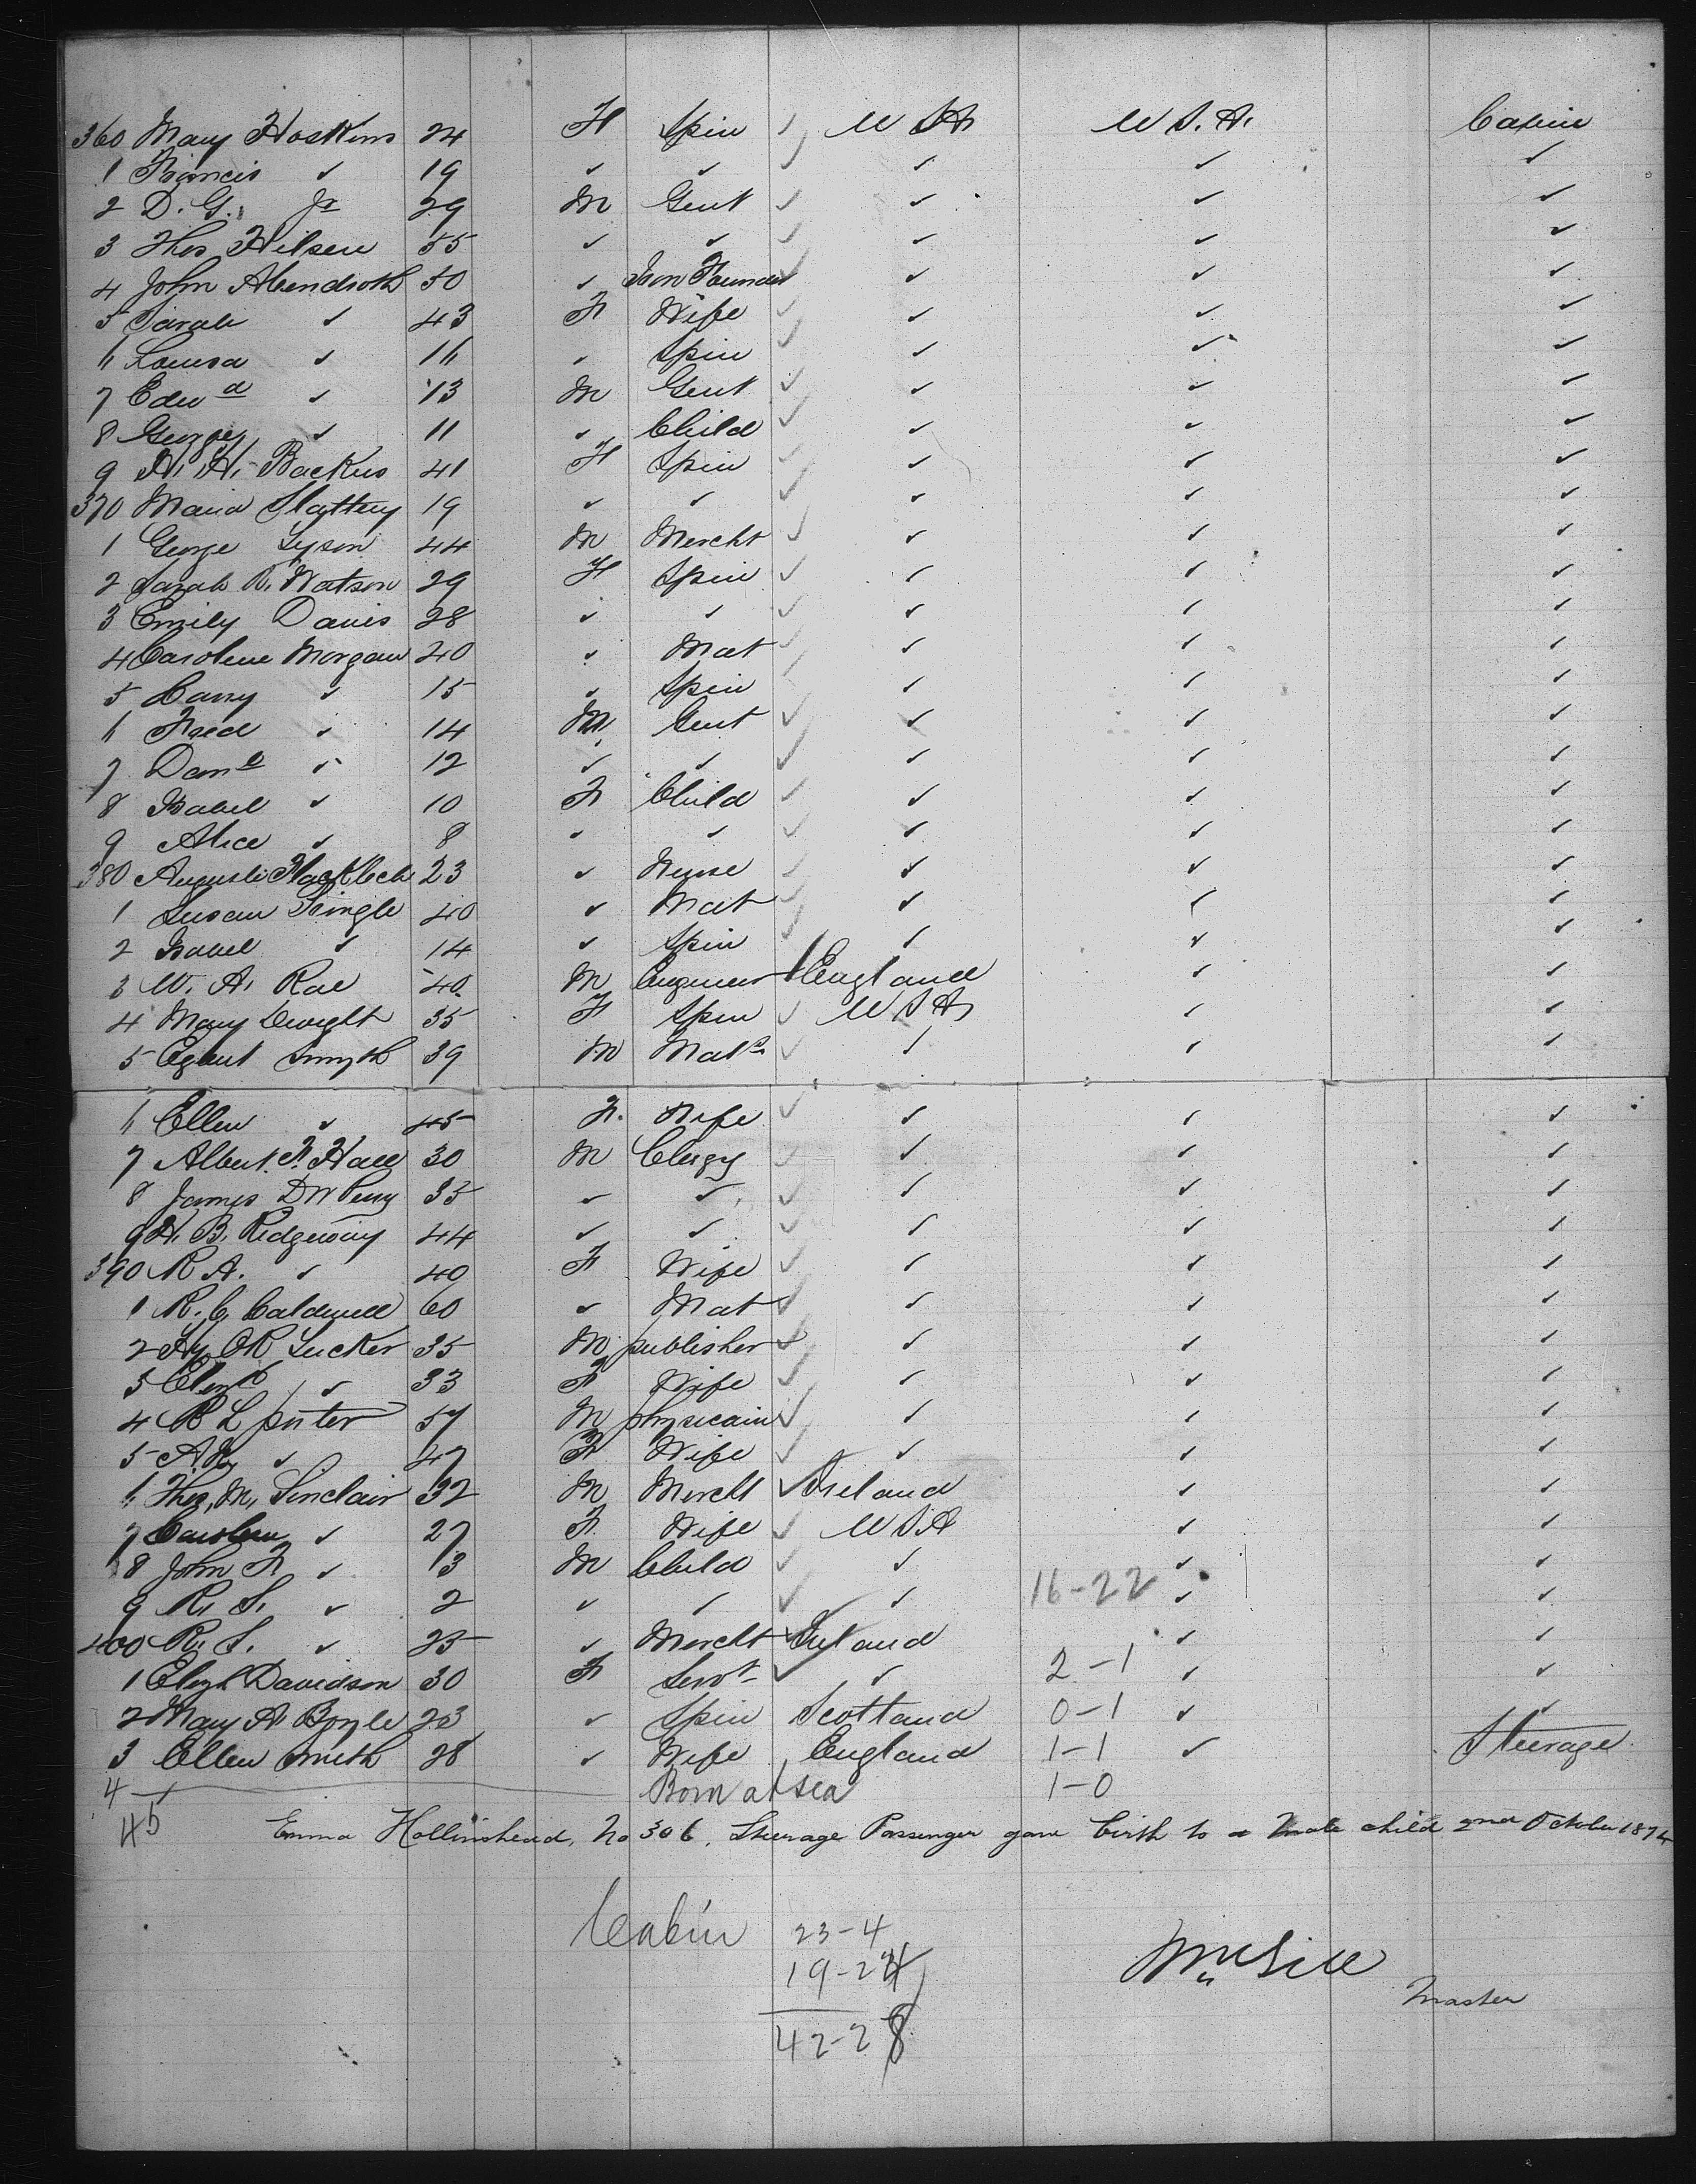 360 Mary Hoskins 24 F Spin ✓ U S A U S. A. Cabin
1 Francis ✓ 19 ✓ ✓ ✓ ✓ ✓ ✓
2 D. G. Jr 29 M Gent ✓ ✓ ✓ ✓
3 Thos Hilsen 55 ✓ ✓ ✓ ✓ ✓ ✓
4 John Abendroth 50 ✓ Iron Founder ✓ ✓ ✓ ✓
5 Sarah ✓ 43 F Wife ✓ ✓ ✓ ✓
6 Louisa ✓ 16 ✓ Spin ✓ ✓ ✓ ✓
7 Edwd ✓ 13 M Gent ✓ ✓ ✓ ✓
8 George ✓ 11 ✓ Child ✓ ✓ ✓ ✓
9 A. H. Backus 41 F Spin ✓ ✓ ✓ ✓
370 Maria Slattery 19 ✓ ✓ ✓ ✓ ✓ ✓
1 George Tyson 44 M Mercht ✓ ✓ ✓ ✓
2 Sarah R. Watson 29 F Spin ✓ ✓ ✓ ✓
3 Emily Davis 28 ✓ ✓ ✓ ✓ ✓ ✓
4 Caroline Morgan 40 ✓ Mat ✓ ✓ ✓ ✓
5 Carry ✓ 15 ✓ Spin ✓ ✓ ✓ ✓
6 Fred ✓ 14 M Gent ✓ ✓ ✓ ✓
7 Danl ✓ 12 ✓ ✓ ✓ ✓ ✓ ✓
8 Isabel ✓ 10 F Child ✓ ✓ ✓ ✓
9 Alice ✓ 8 ✓ ✓ ✓ ✓ ✓ ✓
380 Auguste 23 ✓ Nurse ✓ ✓ ✓ ✓
1 Susan Pringle 40 ✓ Mat ✓ ✓ ✓ ✓
2 Isabel ✓ 14 ✓ Spin ✓ ✓ ✓ ✓
3 W. A. Rae 40 M Engineer ✓ England ✓ ✓
4 Mary Dwight 35 F Spin ✓ U S A ✓ ✓
5 Egbert Smyth 39 M ✓ ✓ ✓ ✓
6 Ellen ✓ 45 F. Wife ✓ ✓ ✓ ✓
7 Albert. F. Hall 30 M Clergy ✓ ✓ ✓ ✓
8 James DW Perry 35 ✓ ✓ ✓ ✓ ✓ ✓
9 H. B. Ridgeway 44 ✓ ✓ ✓ ✓ ✓ ✓
390 R A. ✓ 40 F Wife ✓ ✓ ✓ ✓
1 R. C. Caldwell 60 ✓ Mat ✓ ✓ ✓ ✓
2 Hy OR Tucker 35 M publisher ✓ ✓ ✓ ✓
3 ✓ 33 F Wife ✓ ✓ ✓ ✓
4 R L porter 57 M physicain ✓ ✓ ✓ ✓
5 ✓ 47 F Wife ✓ ✓ ✓ ✓
6 Thos. M. Sinclair 32 M Mercht ✓ Ireland ✓ ✓
7 Caroline ✓ 27 F. Wife ✓ U S A ✓ ✓
8 John F ✓ 13 M Child ✓ ✓ ✓ ✓
9 R. S. ✓ 2 ✓ ✓ ✓ ✓ 16-22 ✓ ✓
400 R. S. ✓ 25 ✓ Mercht ✓ Ireland ✓ ✓
1 Elizh Davidson 30 F Servt ✓ ✓ 2-1 ✓ ✓
2 Mary A Boyle 23 ✓ Spin Scotland 0-1 ✓ ✓
3 Ellen Smith 28 ✓ Wife England 1-1 ✓ Steerage
4 Born at sea 1-0
45 Emma Hollinshead, No 306, Steerage Passenger gave birth to a male child 2nd October 1874
Cabin 23-4
19-24
42-28
Master